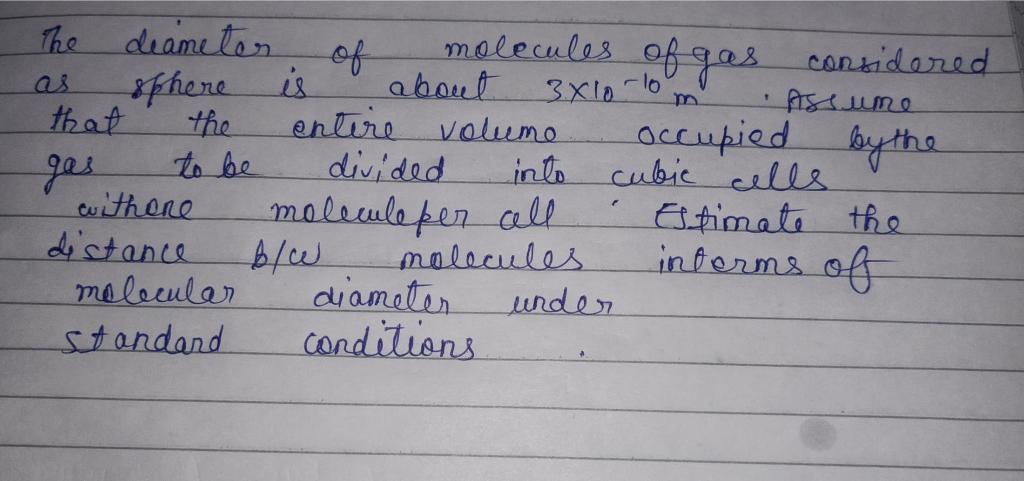 The diameter of molecules of gas considered
as sphere is about 3×10⁻¹⁰ m . Assume
that the entire volume occupied by the
gas to be divided into cubic cells
with one molecule per cell . Estimate the
distance b/w molecules interms of
molecular diameter under
standard conditions .